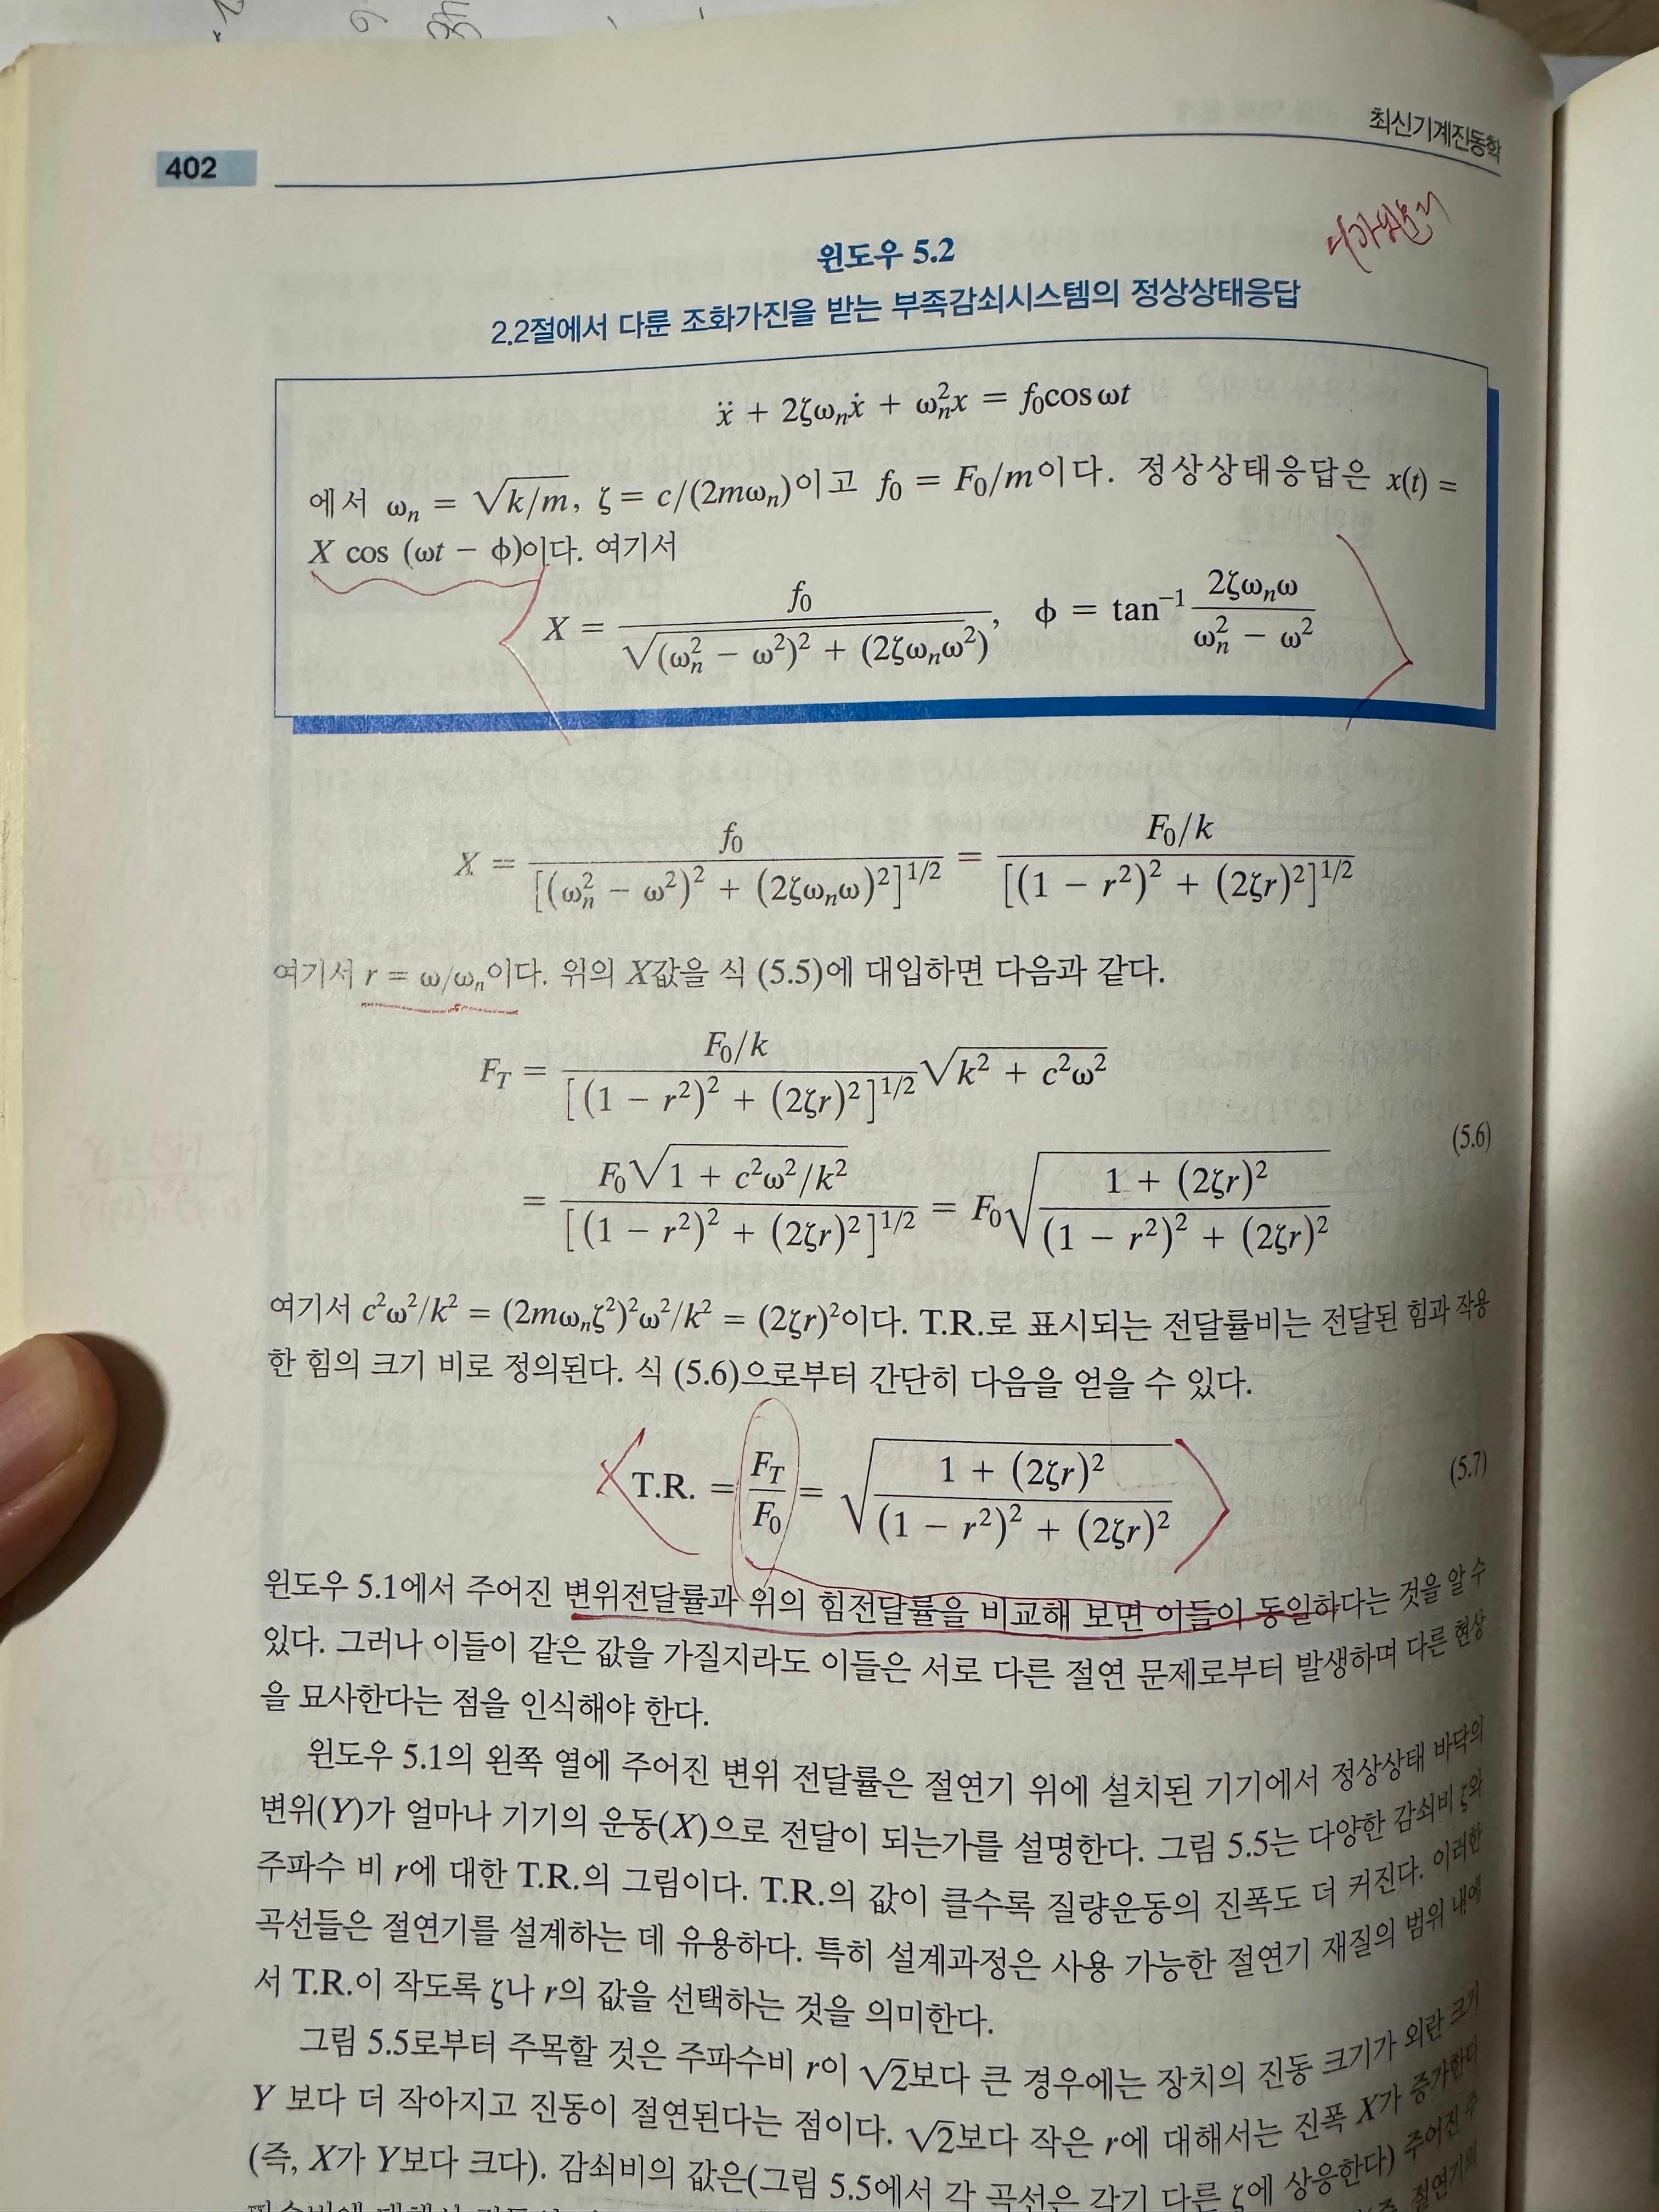 402
최신기계진동학
윈도우 5.2
2.2절에서 다룬 조화가진을 받는 부족감쇠시스템의 정상상태응답
ẍ + 2ζωₙẋ + ωₙ²x = f₀cos ωt
에서 ωₙ = √(k/m), ζ = c/(2mωₙ)이고 f₀ = F₀/m이다. 정상상태응답은 x(t) =
X cos (ωt − ϕ)이다. 여기서
X = f₀ / √((ωₙ² − ω²)² + (2ζωₙω²)), ϕ = tan⁻¹ 2ζωₙω / (ωₙ² − ω²)
X = f₀ / [(ωₙ² − ω²)² + (2ζωₙω)²]^1/2 = F₀/k / [(1 − r²)² + (2ζr)²]^1/2
여기서 r = ω/ωₙ이다. 위의 X값을 식 (5.5)에 대입하면 다음과 같다.
F_T = F₀/k / [(1 − r²)² + (2ζr)²]^1/2 √(k² + c²ω²)
= F₀√(1 + c²ω²/k²) / [(1 − r²)² + (2ζr)²]^1/2 = F₀√((1 + (2ζr)²) / ((1 − r²)² + (2ζr)²)) (5.6)
여기서 c²ω²/k² = (2mωₙζ²)²ω²/k² = (2ζr)²이다. T.R.로 표시되는 전달률비는 전달된 힘과 작용
한 힘의 크기 비로 정의된다. 식 (5.6)으로부터 간단히 다음을 얻을 수 있다.
T.R. = F_T / F₀ = √((1 + (2ζr)²) / ((1 − r²)² + (2ζr)²)) (5.7)
윈도우 5.1에서 주어진 변위전달률과 위의 힘전달률을 비교해 보면 이들이 동일하다는 것을 알 수
있다. 그러나 이들이 같은 값을 가질지라도 이들은 서로 다른 절연 문제로부터 발생하며 다른 현상
을 묘사한다는 점을 인식해야 한다.
윈도우 5.1의 왼쪽 열에 주어진 변위 전달률은 절연기 위에 설치된 기기에서 정상상태 바닥의
변위(Y)가 얼마나 기기의 운동(X)으로 전달이 되는가를 설명한다. 그림 5.5는 다양한 감쇠비 ζ와
주파수 비 r에 대한 T.R.의 그림이다. T.R.의 값이 클수록 질량운동의 진폭도 더 커진다. 이러한
곡선들은 절연기를 설계하는 데 유용하다. 특히 설계과정은 사용 가능한 절연기 재질의 범위 내에
서 T.R.이 작도록 ζ나 r의 값을 선택하는 것을 의미한다.
그림 5.5로부터 주목할 것은 주파수비 r이 √2보다 큰 경우에는 장치의 진동 크기가 외란 크기
Y 보다 더 작아지고 진동이 절연된다는 점이다. √2보다 작은 r에 대해서는 진폭 X가 증가한다
(즉, X가 Y보다 크다). 감쇠비의 값은(그림 5.5에서 각 곡선은 각기 다른 ζ에 상응한다) 주어진 주